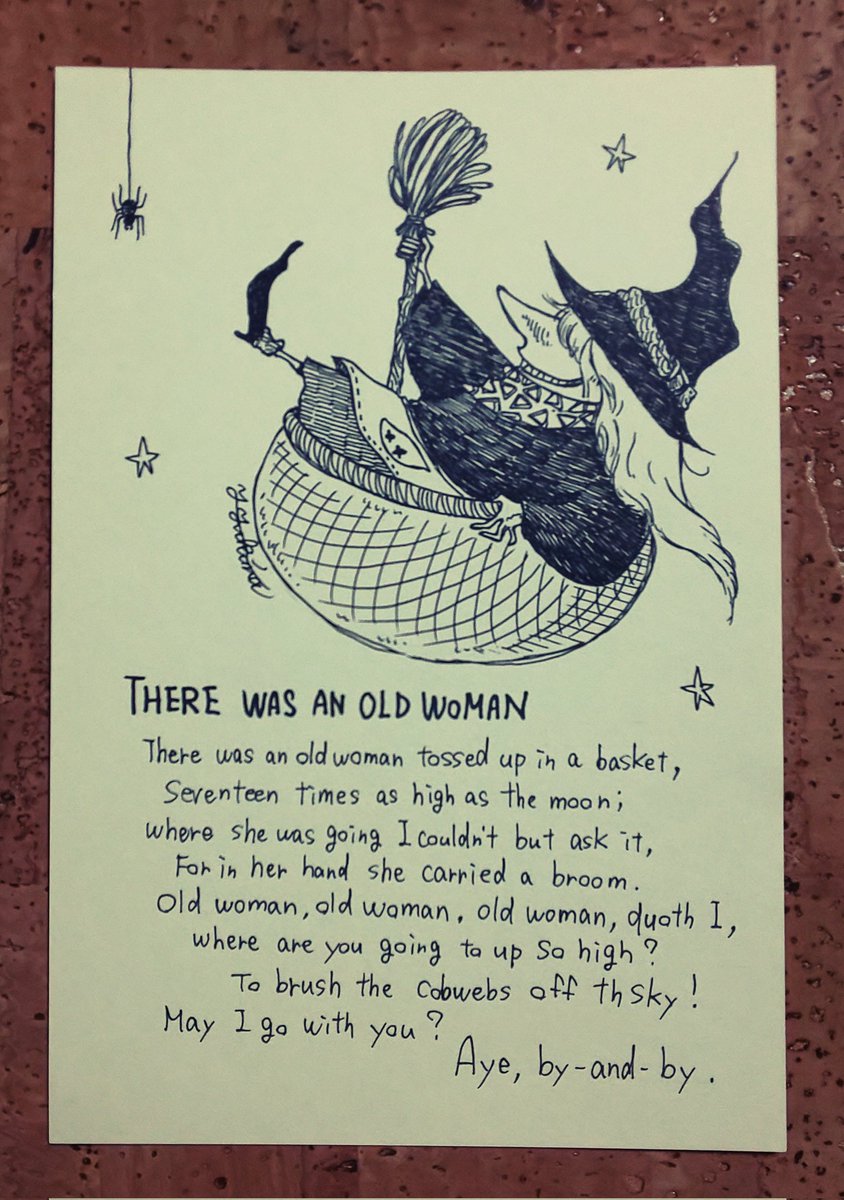 THERE WAS AN OLD WOMAN
There was an old woman tossed up in a basket,
Seventeen times as high as the moon;
where she was going I couldn't but ask it,
For in her hand she carried a broom.
Old woman, old woman, old woman, quoth I,
where are you going to up so high?
To brush the cobwebs off th sky!
May I go with you?
Aye, by-and-by.